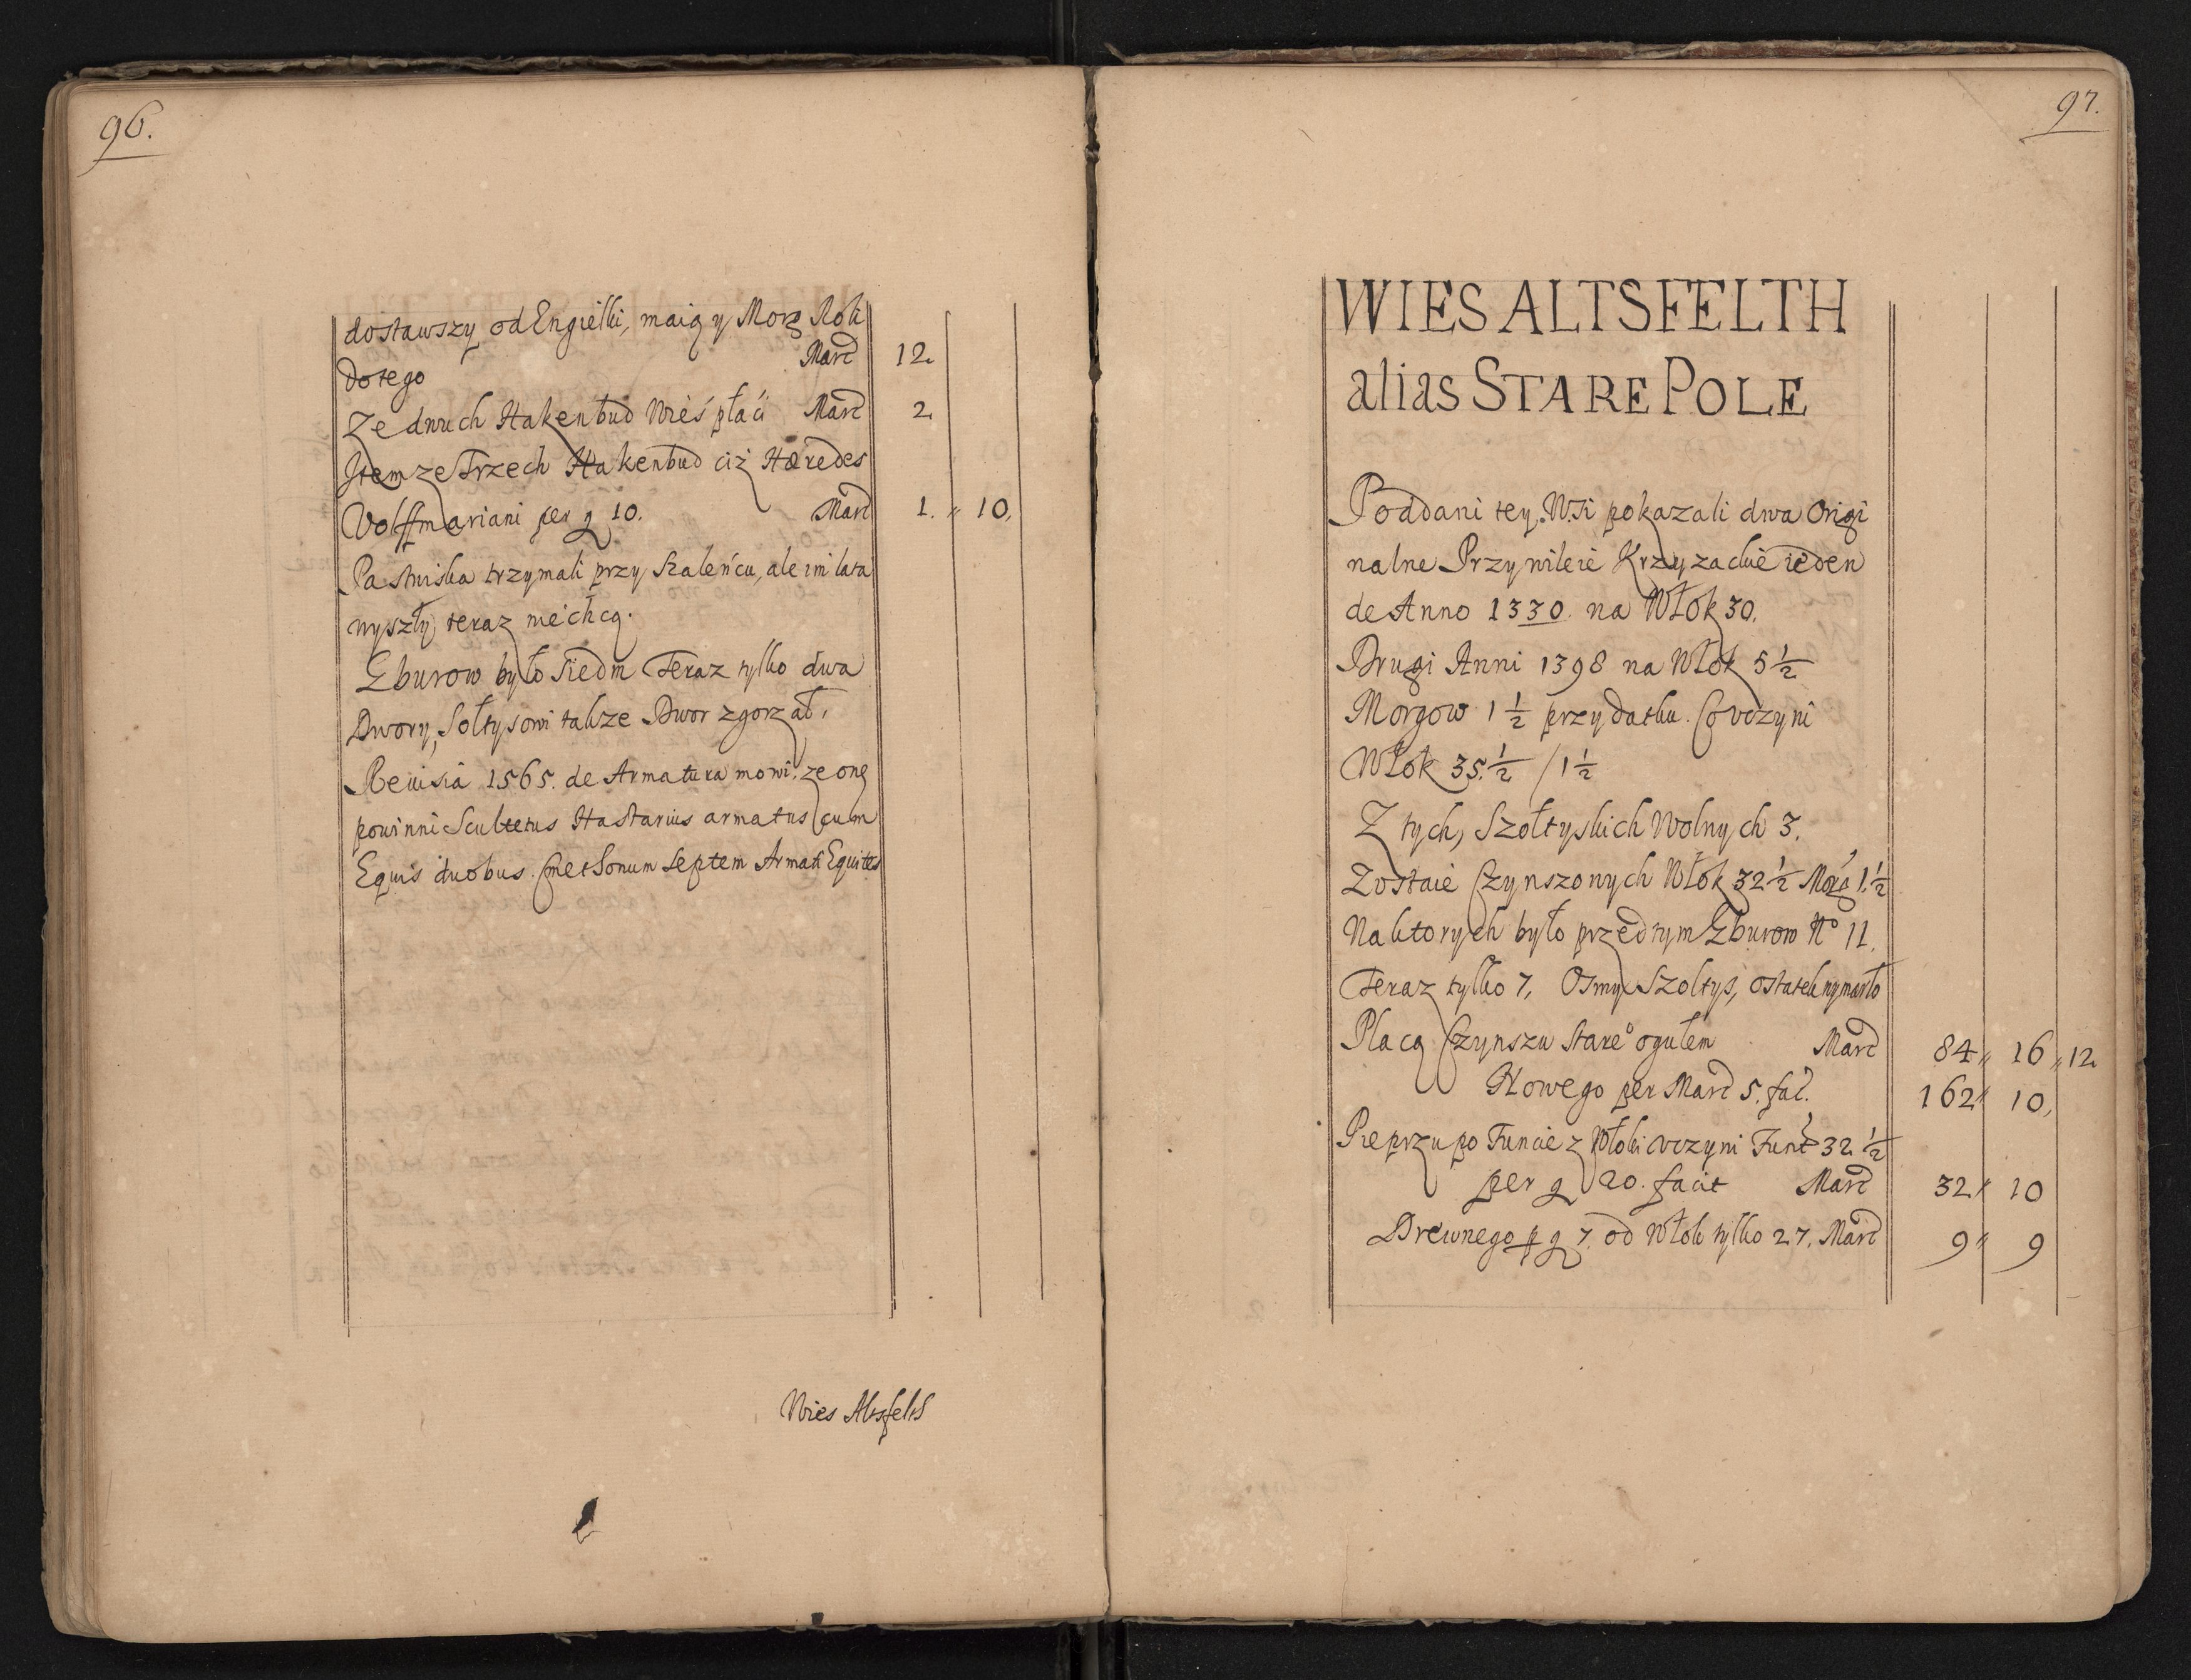 96.
dostawszy od Engielki, maią y Morg Roli
do tego Marc 12.
Ze dwuch Hakenbud Wieś płaci Marc 2.
Item ze Trzech Hakenbud ciż Hæredes
Wolffmariani per g 10. Marc 1. „ 10.
Pastwiska trzymali przy Szaleńcu, ale im lata
wyszły, teraz niechcą.
Gburow było siedm Teraz tylko dwa
Dwory, Sołtysowi takze Dwor zgorzał.
Rewisia 1565. de Armatura mowi. ze oną
powinni Scultetus Hastarius armatus cum
Equis duobus. Cmethonum septem Armati Equites
Wies Altsfeld
97.
WIES ALTSFELTH
alias STARE POLE
Poddani tey Wsi pokazali dwa Origi
nalne Przywileie Krzyzackie ieden
de Anno 1330. na Włok 30.
Drugi Anni 1398 na Włok 5 1/2
Morgow 1 1/2 przydatku. Co vczyni
Włok 35. 1/2 / 1 1/2
Z tych, Szołtyskich Wolnych 3.
Zostaie Czynszonych Włok 32 1/2 Morg 1. 1/2
Naktorych było przedtym Gburow No 11.
Teraz tylko 7, Osmy Szoltys, ostatek wymarło
Placą Czynszu Stareo ogułem Marc 84 „ 16 „ 12
Nowego per Marc 5. fac. 162 „ 10,
Pieprzu po Funcie z Włoki vczyni Funt 32 1/2
per g 20. facit Marc 32 „ 10
Drewnego p g 7. od Włok tylko 27. Marc 9 „ 9